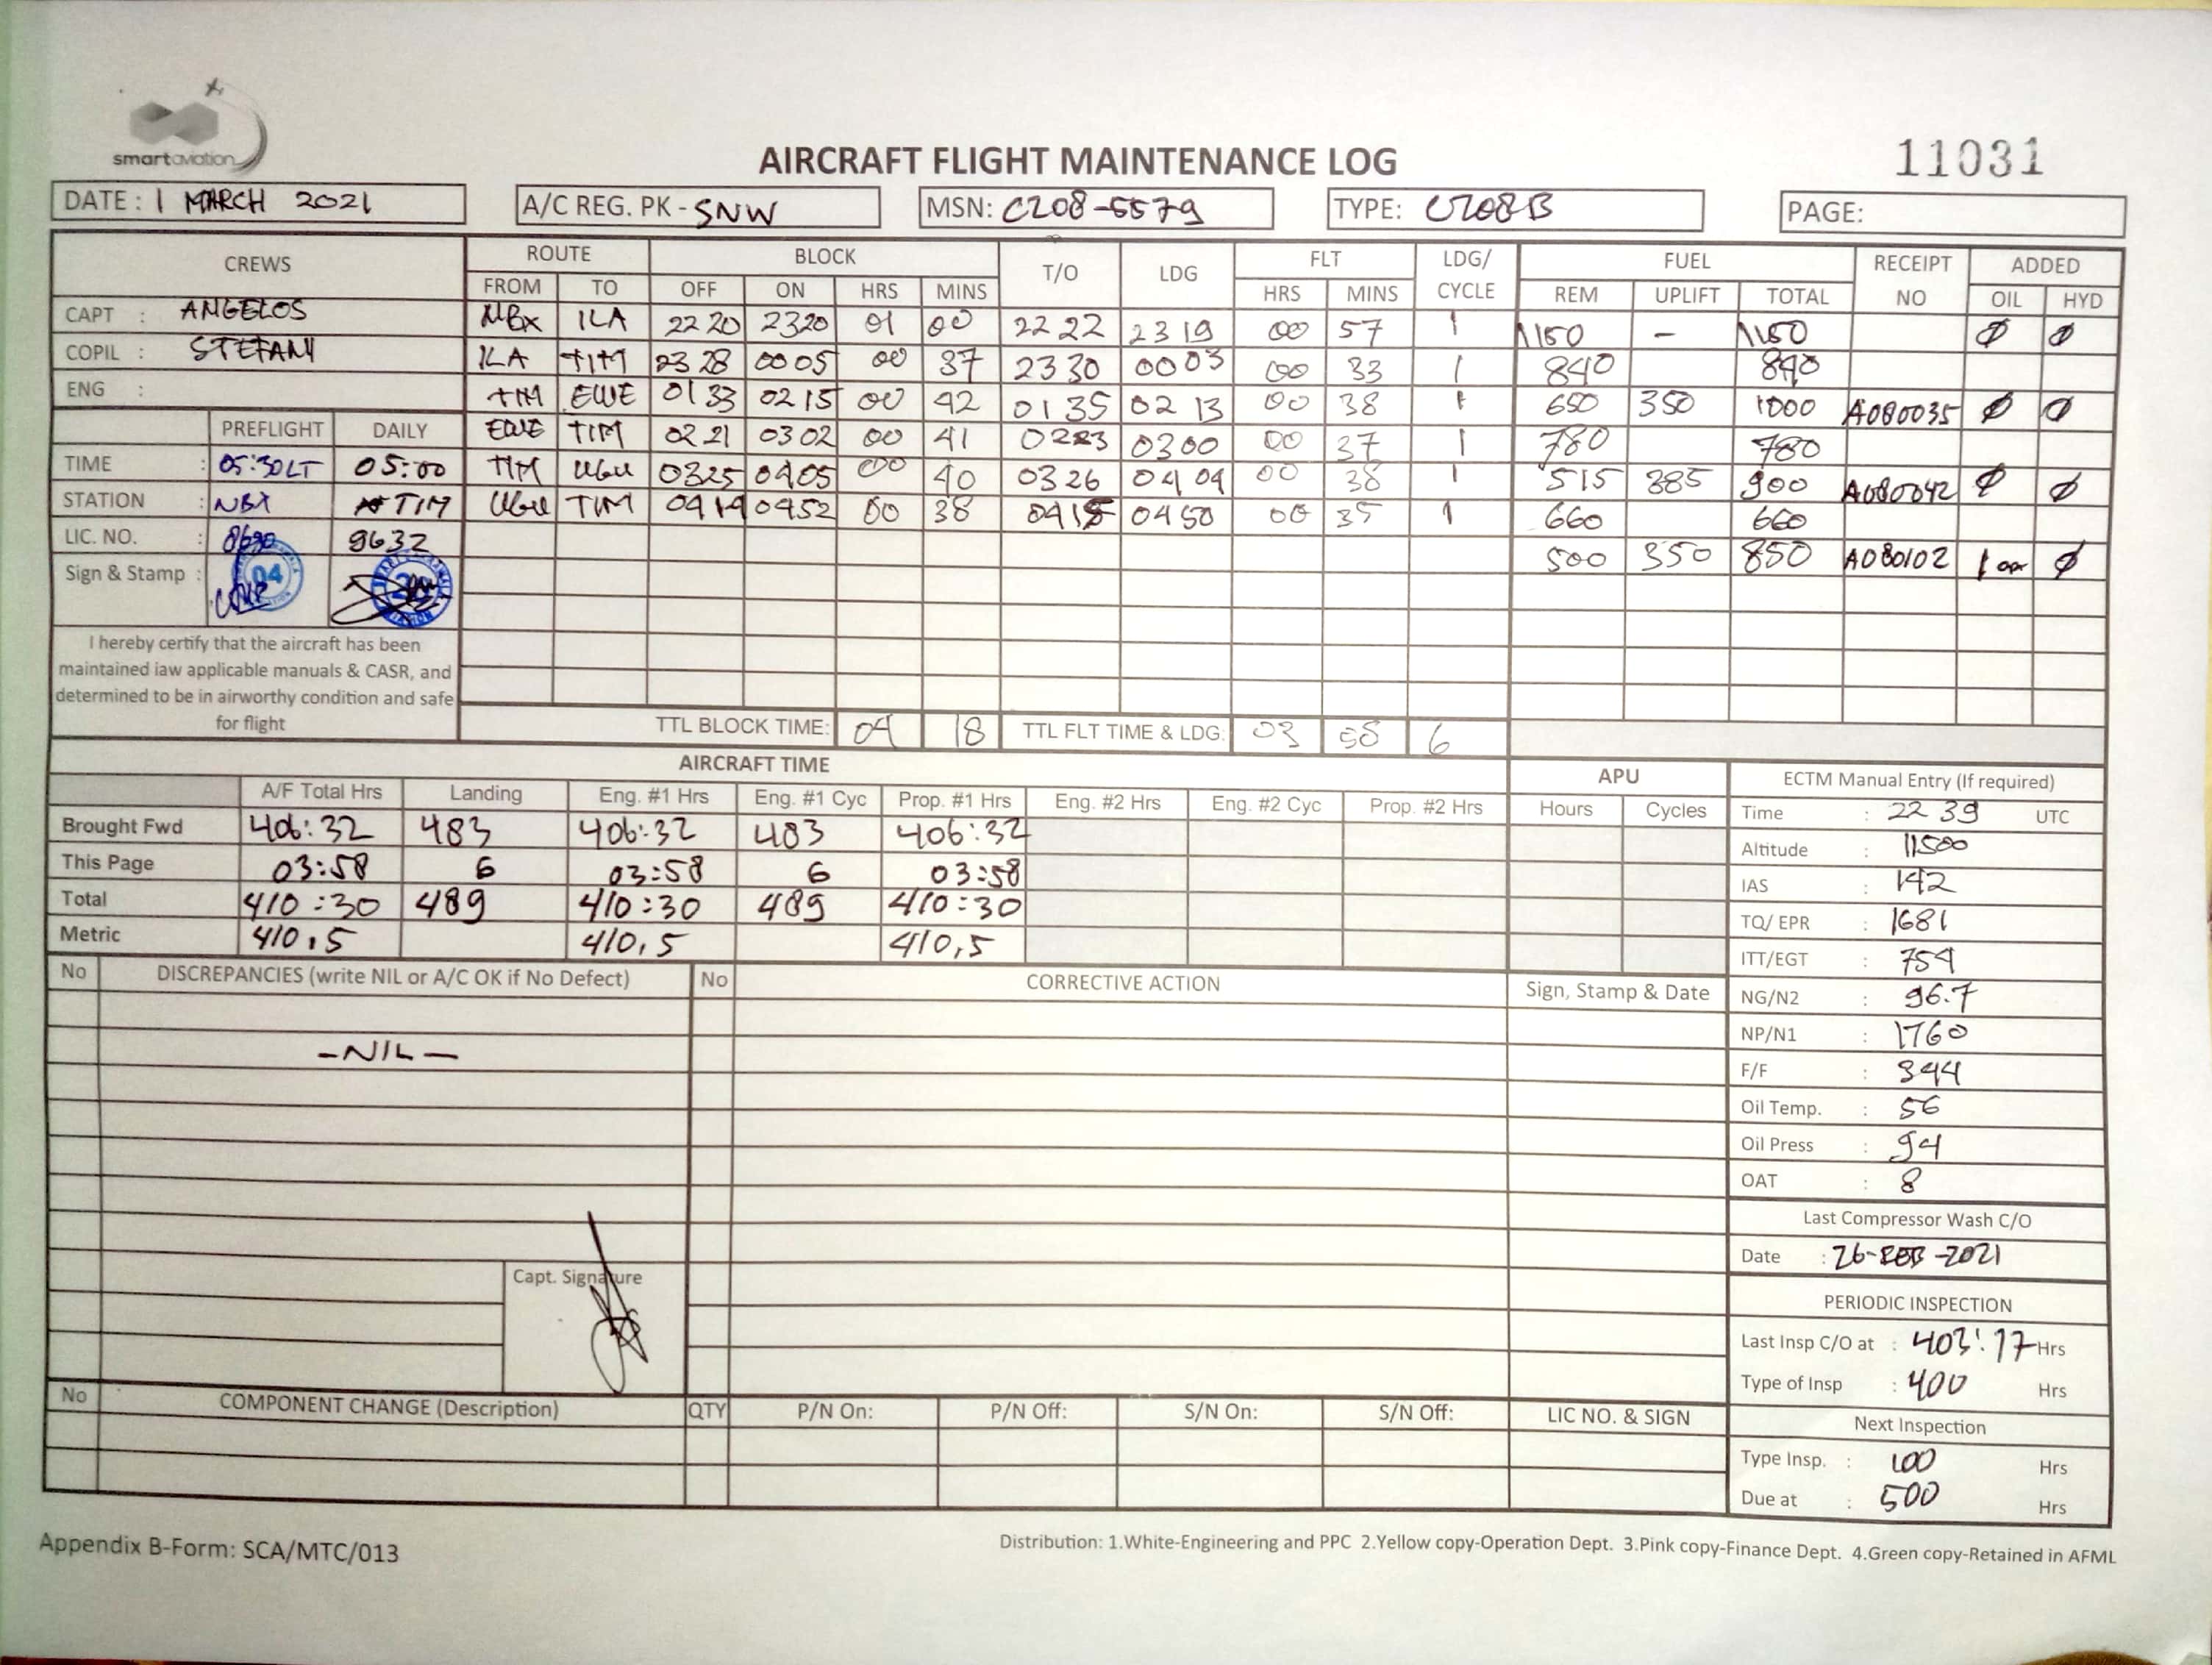 smart aviation
AIRCRAFT FLIGHT MAINTENANCE LOG
11031
DATE : 1 MARCH 2021 A/C REG. PK - SNW MSN: C208-5579 TYPE: C208B PAGE:
CREWS ROUTE BLOCK T/O LDG FLT LDG/ CYCLE FUEL RECEIPT NO ADDED
FROM TO OFF ON HRS MINS HRS MINS REM UPLIFT TOTAL OIL HYD
CAPT : ANGELOS NBX ILA 22 20 2320 01 00 22 22 23 19 00 57 1 1150 – 1150 Ø Ø
COPIL : STEFANY ILA TIM 23 28 00 05 00 37 23 30 00 03 00 33 1 840 840
ENG : TIM EWE 01 33 02 15 00 42 01 35 02 13 00 38 1 650 350 1000 A080035 Ø Ø
PREFLIGHT DAILY EWE TIM 02 21 03 02 00 41 0223 0300 00 37 1 780 780
TIME : 05:30LT 05:00 TIM UGU 0325 0405 00 40 03 26 04 04 00 38 1 515 385 900 A080042 Ø Ø
STATION : NBX TIM UGU TIM 04 14 0452 00 38 0415 04 50 00 35 1 660 660
LIC. NO. : 8690 9632 500 350 850 A080102 1 Ø
Sign & Stamp : 04
I hereby certify that the aircraft has been
maintained iaw applicable manuals & CASR, and
determined to be in airworthy condition and safe
for flight
TTL BLOCK TIME: 04 18 TTL FLT TIME & LDG: 03 58 6
AIRCRAFT TIME APU ECTM Manual Entry (If required)
A/F Total Hrs Landing Eng. #1 Hrs Eng. #1 Cyc Prop. #1 Hrs Eng. #2 Hrs Eng. #2 Cyc Prop. #2 Hrs Hours Cycles
Brought Fwd 406:32 483 406:32 483 406:32
This Page 03:58 6 03:58 6 03:58
Total 410:30 489 410:30 489 410:30
Metric 410,5 410,5 410,5
Time : 22 39 UTC
Altitude : 11500
IAS : 142
TQ/ EPR : 1681
ITT/EGT : 754
NG/N2 : 96.7
NP/N1 : 1760
F/F : 344
Oil Temp. : 56
Oil Press : 94
OAT : 8
No DISCREPANCIES (write NIL or A/C OK if No Defect) No CORRECTIVE ACTION Sign, Stamp & Date
–NIL–
Capt. Signature
Last Compressor Wash C/O
Date : 26-FEB-2021
PERIODIC INSPECTION
Last Insp C/O at : 403:17 Hrs
Type of Insp : 400 Hrs
Next Inspection
Type Insp. : 100 Hrs
Due at : 500 Hrs
No COMPONENT CHANGE (Description) QTY P/N On: P/N Off: S/N On: S/N Off: LIC NO. & SIGN
Appendix B-Form: SCA/MTC/013
Distribution: 1.White-Engineering and PPC 2.Yellow copy-Operation Dept. 3.Pink copy-Finance Dept. 4.Green copy-Retained in AFML